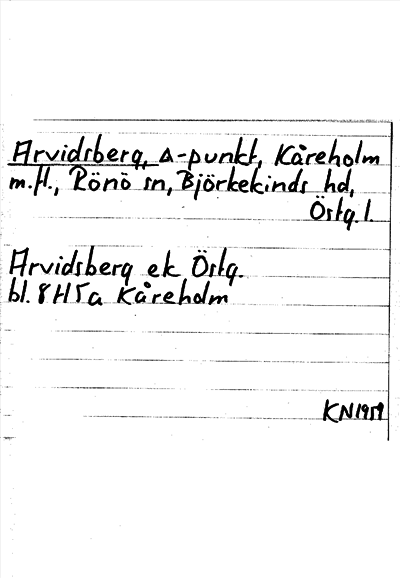 Arvidsberg, △-punkt, Kåreholm
m.fl., Rönö sn, Björkekinds hd,
Östg. l.
Arvidsberg ek Östg.
bl. 8H5a Kåreholm
KN 1959